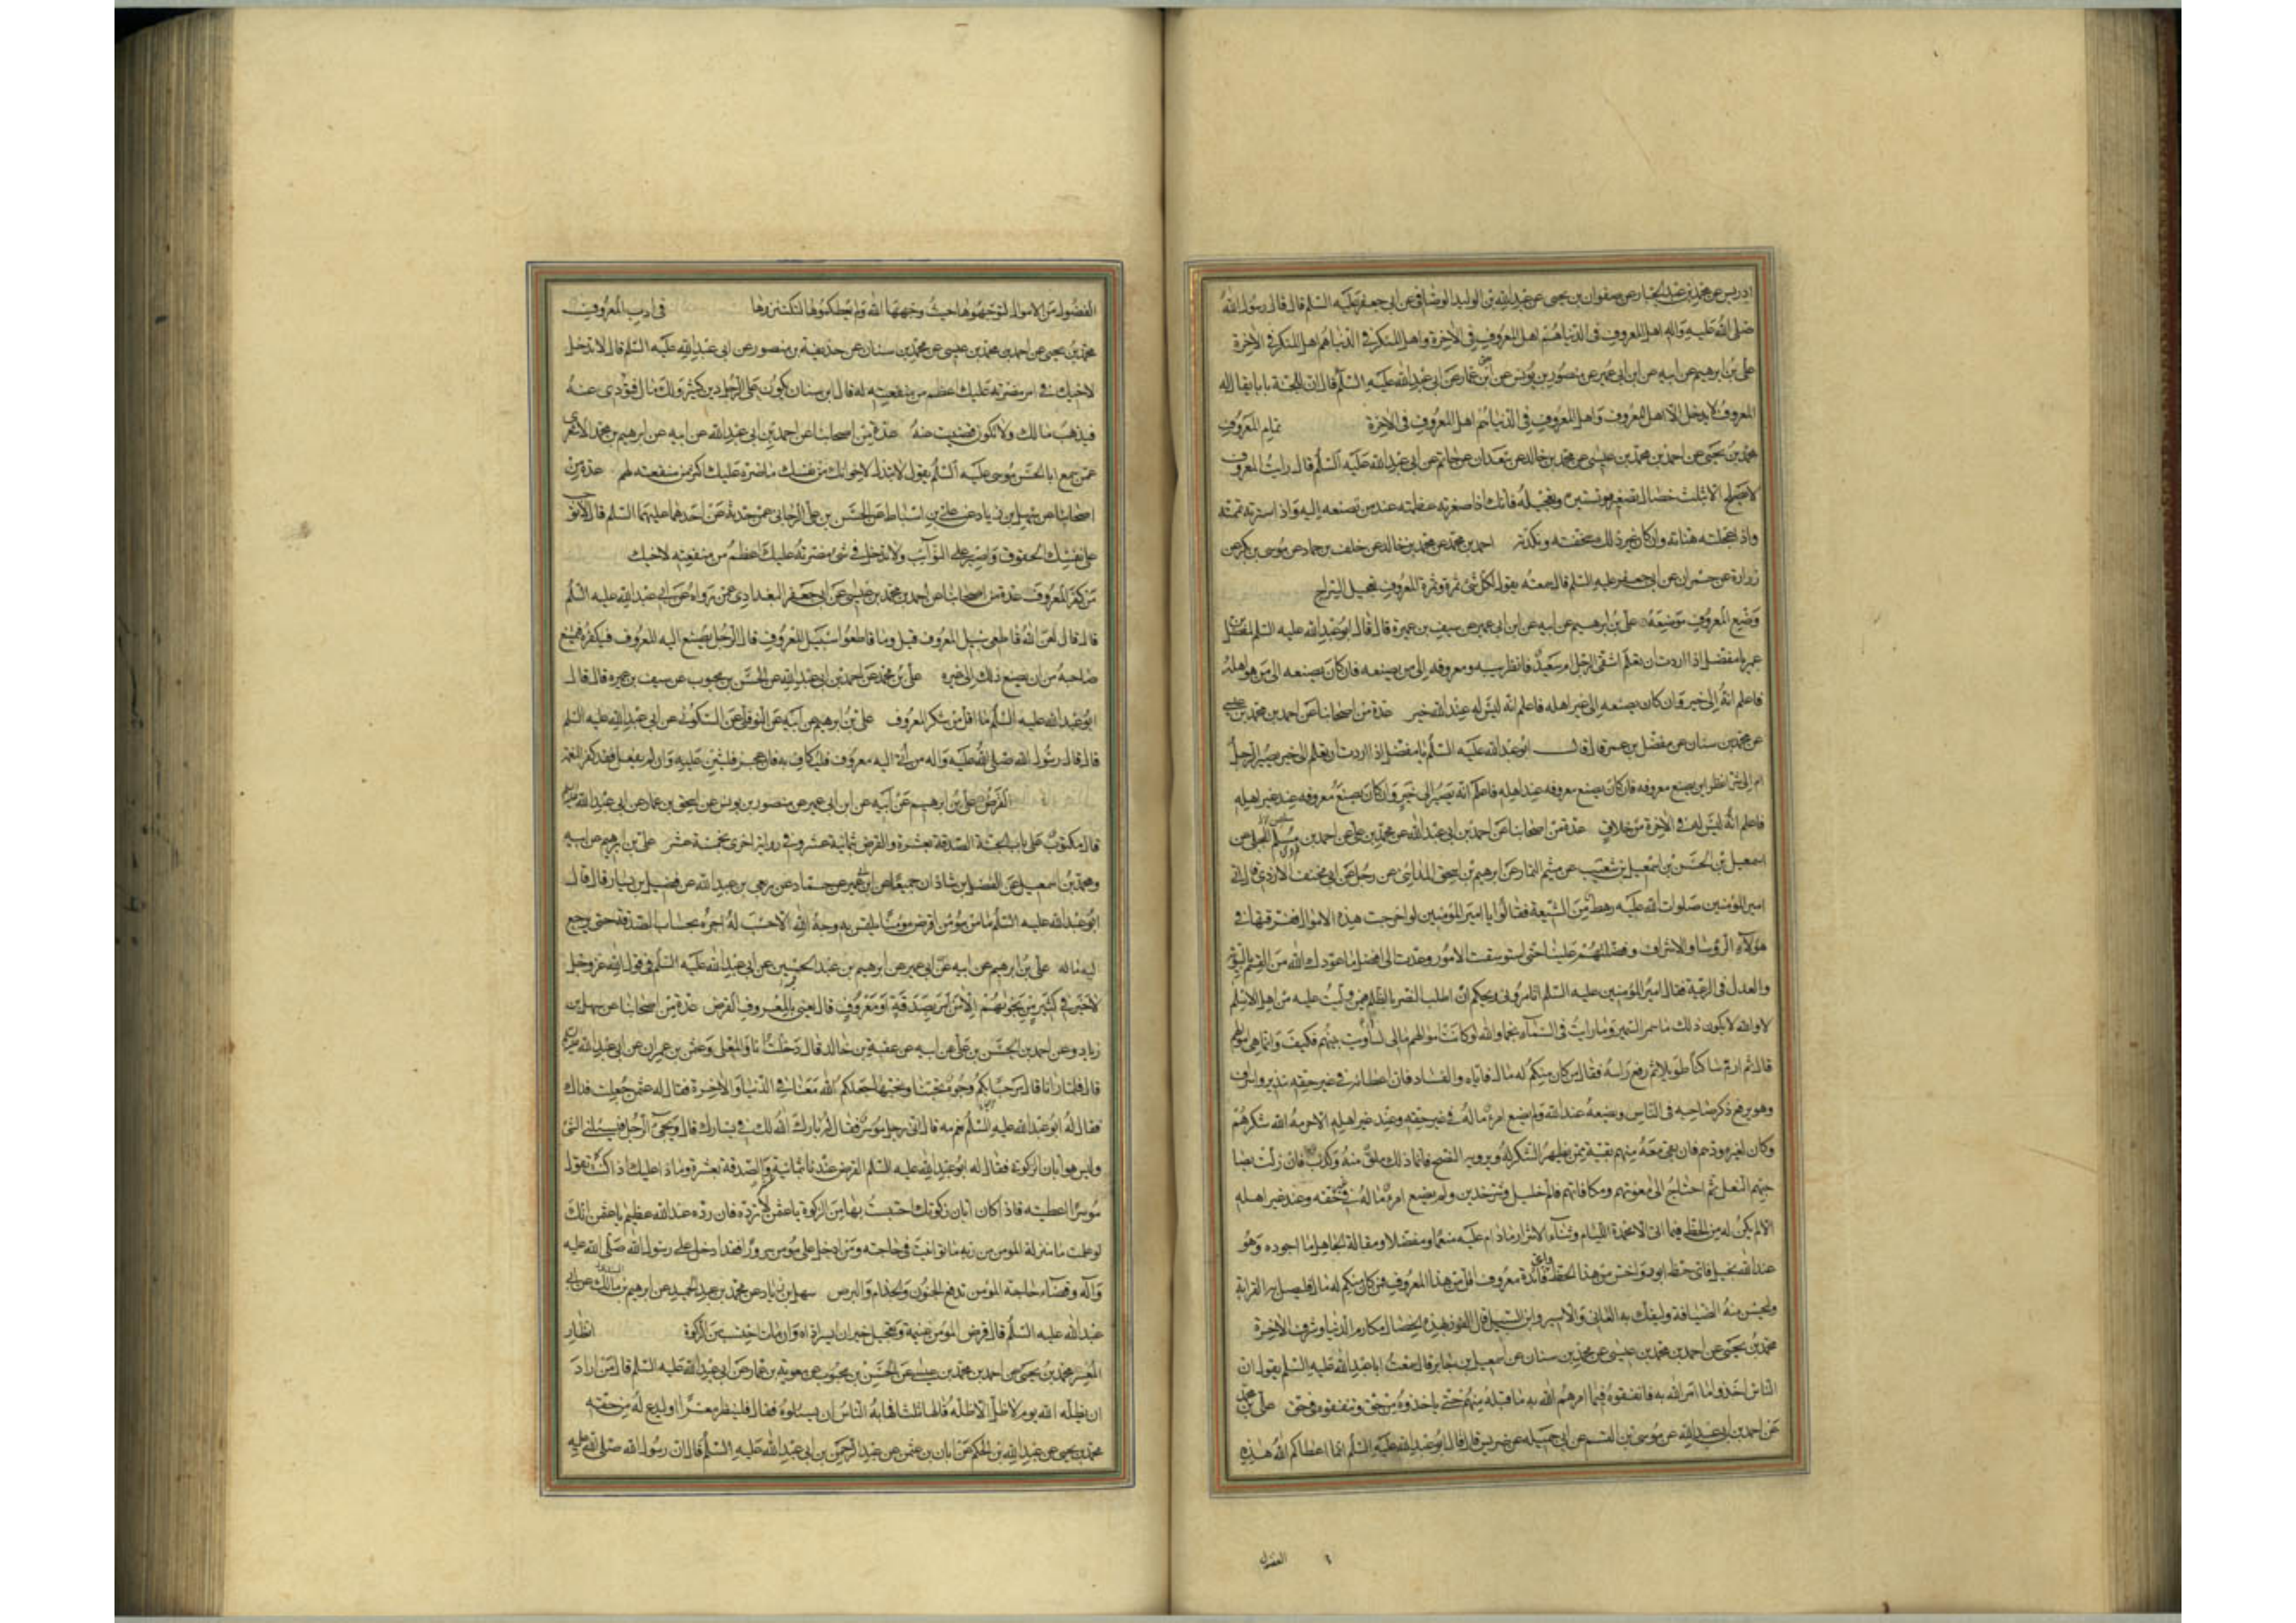 ادريس عن محمد بن عبد الجبار عن صفوان بن يحيى عن عبد الله بن الوليد الوصافي عن ابي جعفر عليه السلم قال قال رسول الله
صلى الله عليه واله اهل المعروف في الدنيا هم اهل المعروف في الاخرة واهل المنكر في الدنيا هم اهل المنكر في الاخرة
علي بن ابرهيم عن ابيه عن ابن ابي عمير عن منصور بن يونس عن ابن عمار عن ابي عبد الله عليه السلم قال ان للجنة بابا يقال له
المعروف لا يدخل الا اهل المعروف واهل المعروف في الدنيا هم اهل المعروف في الاخرة تمام المعروف
محمد بن يحيى عن احمد بن محمد بن عيسى عن محمد بن خالد عن سعدان عن حاتم عن ابي عبد الله عليه السلم قال رايت المعروف
لا يصلح الا بثلث خصال تصغيره وتستيره وتعجيله فانك اذا صغرته عظمته عند من تصنعه اليه واذا سترته تممته
واذا عجلته هناته وان كان غير ذلك سخفته ونكدته احمد بن محمد عن محمد بن خالد عن خلف بن حماد عن موسى بن بكر عن
زرارة عن حمران عن ابي جعفر عليه السلم قال سمعته يقول لكل شئ ثمرة وثمرة المعروف تعجيل السراح
وضع المعروف موضعه علي بن ابرهيم عن ابيه عن ابن ابي عمير عن سيف بن عميرة قال قال ابو عبد الله عليه السلم لمفضل بن
عمر يا مفضل اذا اردت ان تعلم اشقي الرجل ام سعيد فانظر سيبه ومعروفه الى من يصنعه فان كان يصنعه الى من هو اهله
فاعلم انه الى خير وان كان يصنعه الى غير اهله فاعلم انه ليس له عند الله خير عدة من اصحابنا عن احمد بن محمد بن عيسى
عن محمد بن سنان عن مفضل بن عمر قال قال ابو عبد الله عليه السلم يا مفضل اذا اردت ان تعلم الى خير يصير الرجل
ام الى شر انظر اين يصنع معروفه فان كان يصنع معروفه عند اهله فاعلم انه يصير الى خير وان كان يصنع معروفه عند غير اهله
فاعلم انه ليس له في الاخرة من خلاق عدة من اصحابنا عن احمد بن ابي عبد الله عن محمد بن علي عن احمد بن عن
اسمعيل بن الحسن بن اسمعيل بن شعيب عن ميثم التمار عن ابرهيم بن اسحق المدائني عن رجل عن ابي مخنف الازدي قال اتى
امير المؤمنين صلوات الله عليه رهط من الشيعة فقالوا يا امير المؤمنين لو اخرجت هذه الاموال ففرقتها في
هؤلاء الرؤسا والاشراف وفضلتهم علينا حتى اذا استوسقت الامور وعدت الى افضل ما عودك الله من القسم بالسوية
والعدل في الرعية فقال امير المؤمنين عليه السلم اتامروني ويحكم ان اطلب النصر بالظلم فيمن وليت عليه من اهل الاسلم
لا والله لا يكون ذلك ما سمر السمير وما رايت في السماء نجما والله لو كانت اموالهم مالي لساويت بينهم فكيف وانما هي اموالهم
قال ثم ازم ساكتا طويلا ثم رفع راسه فقال من كان منكم له مال فاياه والفساد فان اعطائه في غير حقه تبذير واسراف
وهو يرفع ذكر صاحبه في الناس ويضعه عند الله ولم يضع امرء ماله في غير حقه وعند غير اهله الا حرمه الله شكرهم
وكان لغيره ودهم فان بقي معه منهم بقية ممن يظهر الشكر له ويريه النصح فانما ذلك ملق منه وكذب فان زلت بصا
حبهم النعل ثم احتاج الى معونتهم ومكافاتهم فالام خليل وشر خدين ولم يضع امرء ماله في غير حقه وعند غير اهله
الا لم يكن له من الحظ فيما اتى الا محمدة اللئام وثناء الاشرار ما دام عليه منعما مفضلا ومقالة الجاهل ما اجوده وهو
عند الله بخيل فاي حظ ابور واخس من هذا الحظ واي فائدة معروف اقل من هذا المعروف فمن كان منكم له مال فليصل به القرابة
وليحسن منه الضيافة وليفك به العاني والاسير وابن السبيل فان الفوز بهذه الخصال مكارم الدنيا وشرف الاخرة
محمد بن يحيى عن احمد بن محمد بن عيسى عن محمد بن سنان عن اسمعيل بن جابر قال سمعت ابا عبد الله عليه السلم يقول لو ان
الناس اخذوا ما امر الله به فانفقوه فيما امرهم الله به ما قبله منهم حتى ياخذوه من حق وينفقوه في حق علي بن محمد
عن احمد بن ابي عبد الله عن موسى بن القسم عن ابي جميله عن ضريس قال قال ابو عبد الله عليه السلم انما اعطاكم الله هذه
الفضول
الفضول من الاموال لتوجهوها حيث وجهها الله ولم يعطكموها لتكنزوها في ادب المعروف
محمد بن يحيى عن احمد بن محمد بن عيسى عن محمد بن سنان عن حذيفة بن منصور عن ابي عبد الله عليه السلم قال لا تدخل
لاخيك في امر مضرته عليك اعظم من منفعته له قال ابن سنان يكون على الرجل دين كثير ولك مال فتؤدي عنه
فيذهب مالك ولا تكون قضيت عنه عدة من اصحابنا عن احمد بن ابي عبد الله عن ابيه عن ابرهيم بن محمد الاشعري
عمن سمع ابا الحسن موسى عليه السلم يقول لا تبذل لاخوانك من نفسك ما ضره عليك اكثر من منفعته لهم عدة من
اصحابنا عن سهل بن زياد عن علي بن اسباط عن الحسن بن علي الجرجاني عمن حدثه عن احدهما عليهما السلم قال لا توجب
على نفسك الحقوق واصبر على النوائب ولا تدخل في شئ مضرته عليك اعظم من منفعته لاخيك
من كفر المعروف عدة من اصحابنا عن احمد بن محمد بن عيسى عن ابي جعفر البغدادي عمن رواه عن ابي عبد الله عليه السلم
قال قال لعن الله قاطعي سبيل المعروف قيل وما قاطعوا سبيل المعروف قال الرجل يصنع اليه المعروف فيكفره فيمنع
صاحبه من ان يصنع ذلك الى غيره علي بن محمد عن احمد بن ابي عبد الله عن الحسن بن محبوب عن سيف بن عميره قال قال
ابو عبد الله عليه السلم ما اقل من شكر المعروف علي بن ابرهيم عن ابيه عن النوفلي عن السكوني عن ابي عبد الله عليه السلم
قال قال رسول الله صلى الله عليه واله من اتي اليه معروف فليكاف به فان عجز فليثن عليه وان لم يفعل فقد كفر النعمة
القرض علي بن ابرهيم عن ابيه عن ابن ابي عمير عن منصور بن يونس عن اسحق بن عمار عن ابي عبد الله عليه السلم
قال مكتوب على باب الجنة الصدقة بعشرة والقرض بثمانية عشر وفي رواية اخرى بخمسة عشر علي بن ابرهيم عن ابيه
ومحمد بن اسمعيل عن الفضل بن شاذان جميعا عن ابن ابي عمير عن حماد عن ربعي بن عبد الله عن فضيل بن يسار قال قال
ابو عبد الله عليه السلم ما من مؤمن اقرض مؤمنا يلتمس به وجه الله الا حسب له اجره بحساب الصدقة حتى يرجع
اليه ماله علي بن ابرهيم عن ابيه عن ابن ابي عمير عن ابرهيم بن عبد الحميد عن ابي عبد الله عليه السلم في قول الله عز وجل
لا خير في كثير من نجواهم الا من امر بصدقة او معروف قال يعني بالمعروف القرض عدة من اصحابنا عن سهل بن
زياد وعن احمد بن الحسن بن علي عن ابيه عن عقبة بن خالد قال دخلت انا والمعلى وعثمن بن عمران على ابي عبد الله عليه السلم
قال فلما رانا قال مرحبا بكم وجوه تحبنا ونحبها جعلكم الله معنا في الدنيا والاخرة فقال له عثمن جعلت فداك
فقال له ابو عبد الله عليه السلم نعم مه قال اني رجل موسر فقال له بارك الله لك في يسارك قال ويجئ الرجل فيسئلني الشئ
وليس هو ابان زكوته فقال له ابو عبد الله عليه السلم القرض عندنا بثمانية والصدقة بعشرة وماذا عليك اذا كنت تقول
موسرا اعطيته فاذا كان ابان زكوتك احتسبت بها من الزكوة يا عثمن لا ترده فان رده عند الله عظيم يا عثمن انك
لو علمت ما منزلة المومن من ربه ما توانيت في حاجته ومن ادخل على مؤمن سرورا فقد ادخل على رسول الله صلى الله عليه
وآله وقضاء حاجة المؤمن تدفع الجنون والجذام والبرص سهل بن زياد عن محمد بن عبد الحميد عن ابرهيم بن عن ابي
عبد الله عليه السلم قال قرض المؤمن غنيمة وتعجيل خير ان ايسر اداه وان مات احتسب من الزكوة انظار
المعسر محمد بن يحيى عن احمد بن محمد بن عيسى عن الحسن بن محبوب عن معوية بن عمار عن ابي عبد الله عليه السلم قال من اراد
ان يظله الله يوم لا ظل الا ظله قالها ثلثا فهابه الناس ان يسئلوه فقال فلينظر معسرا او ليدع له من حقه
محمد بن يحيى عن عبد الله بن الحكم عن ابان بن عثمن عن عبد الرحمن بن ابي عبد الله عليه السلم قال ان رسول الله صلى الله عليه